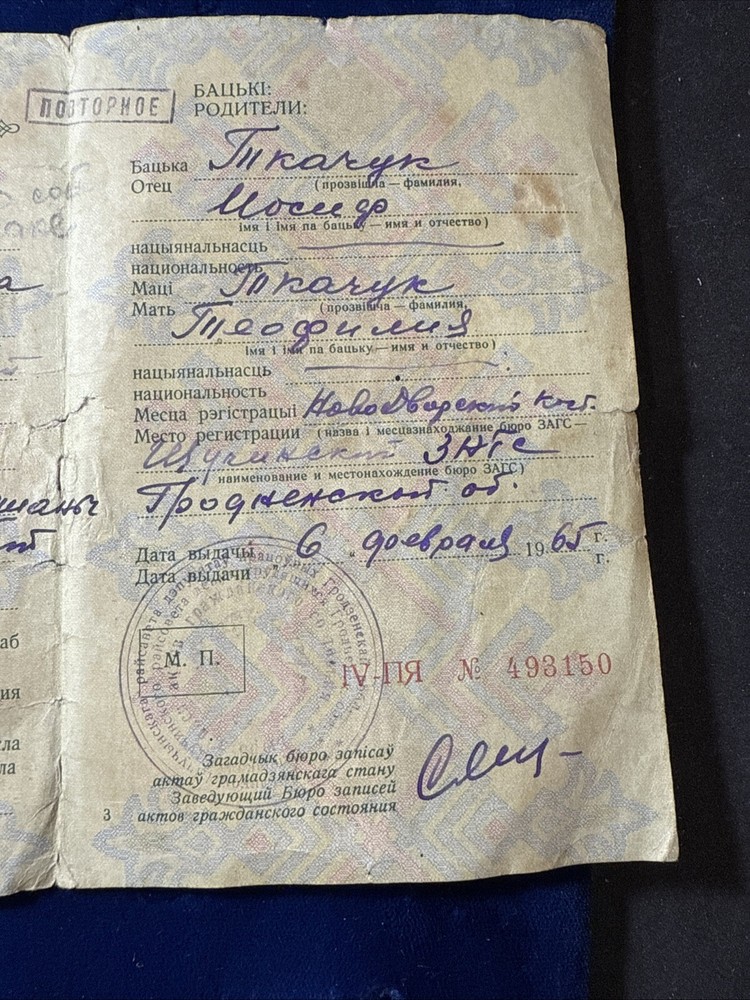 ПОВТОРНОЕ
БАЦЬКІ:
РОДИТЕЛИ:
Бацька Ткачук
Отец (прозвішча — фамилия,
Иосиф
імя і імя па бацьку — имя и отчество)
нацыянальнасць
национальность
Маці Ткачук
Мать (прозвішча — фамилия,
Теофилия
імя і імя па бацьку — имя и отчество)
нацыянальнасць
национальность
Месца рэгістрацыі НовоДворский кост.
Место регистрации (назва і месцазнаходжанне бюро ЗАГС —
Щучинский ЗАГС
наименование и местонахождение бюро ЗАГС)
Гродненской об.
Дата выдачы 6 февраля 1965 г.
Дата выдачи г.
М. П.
IV-ПЯ № 493150
Загадчык бюро запісаў
актаў грамадзянскага стану
Заведующий Бюро записей
3 актов гражданского состояния